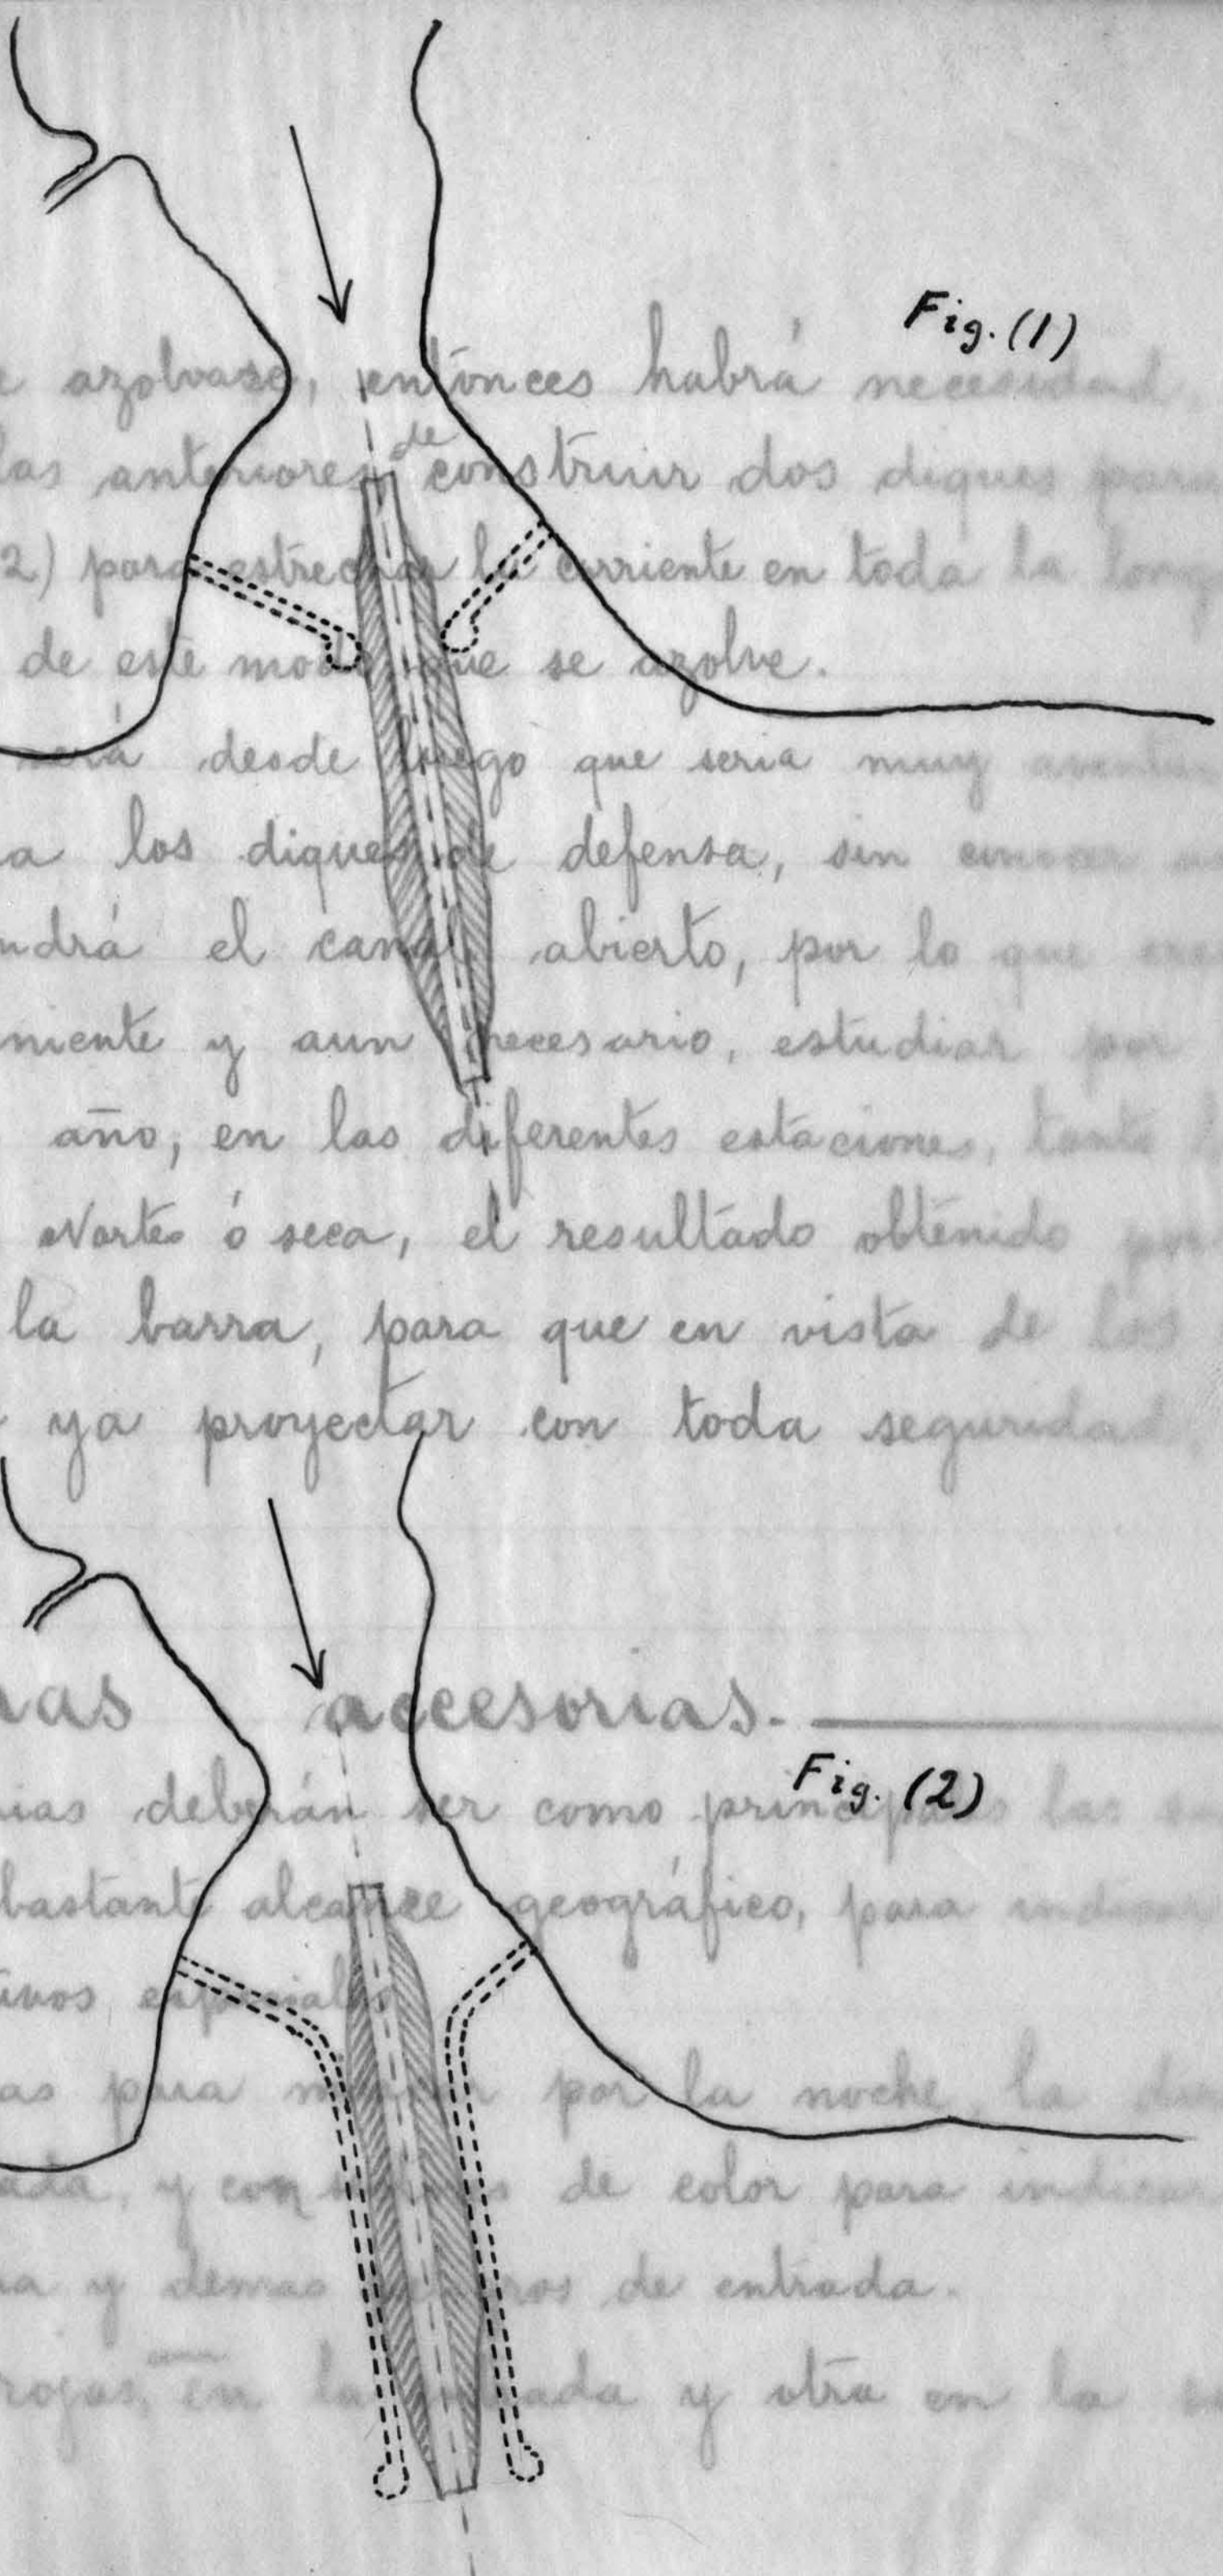 Fig. (1)
azolvarse, entónces habrá necesidad,
las anteriores de construir dos diques para
2) para estrechar la corriente en toda la
de este modo que se azolve.
desde luego que seria muy
a los diques de defensa, sin conocer
ndrá el canal abierto, por lo que
niente y aun necesario, estudiar por
año, en las diferentes estaciones, tanto
Nortes ó seca, el resultado obtenido por
la barra, para que en vista de los
ya proyectar con toda seguridad,
accesorias.
Fig. (2)
ias deberán ser como principales las
bastante alcance geográfico, para indicar
especiales
as para por la noche, la
ada, y con de color para indicar
y demas de entrada.
rojas, en la ada y otra en la